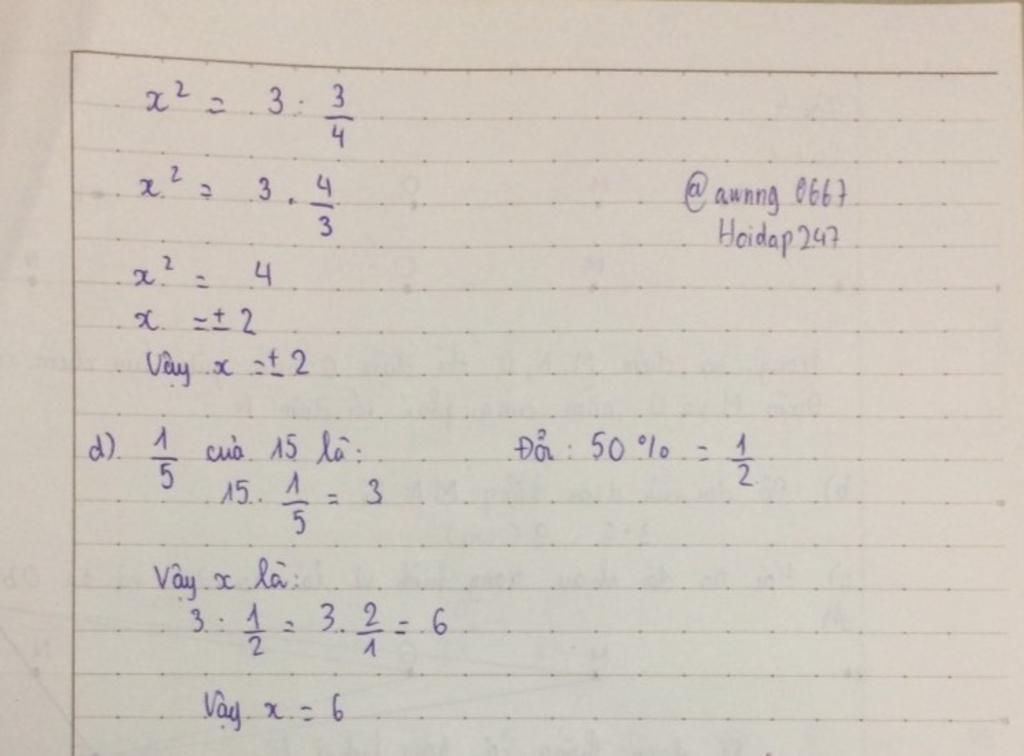 x² = 3 : 3/4
x² = 3 . 4/3
@awnng 0667
Hoidap247
x² = 4
x = ± 2
Vậy x = ± 2
d) 1/5 của 15 là: Đổi : 50 % = 1/2
15 . 1/5 = 3
Vậy x là:
3 : 1/2 = 3 . 2/1 = 6
Vậy x = 6